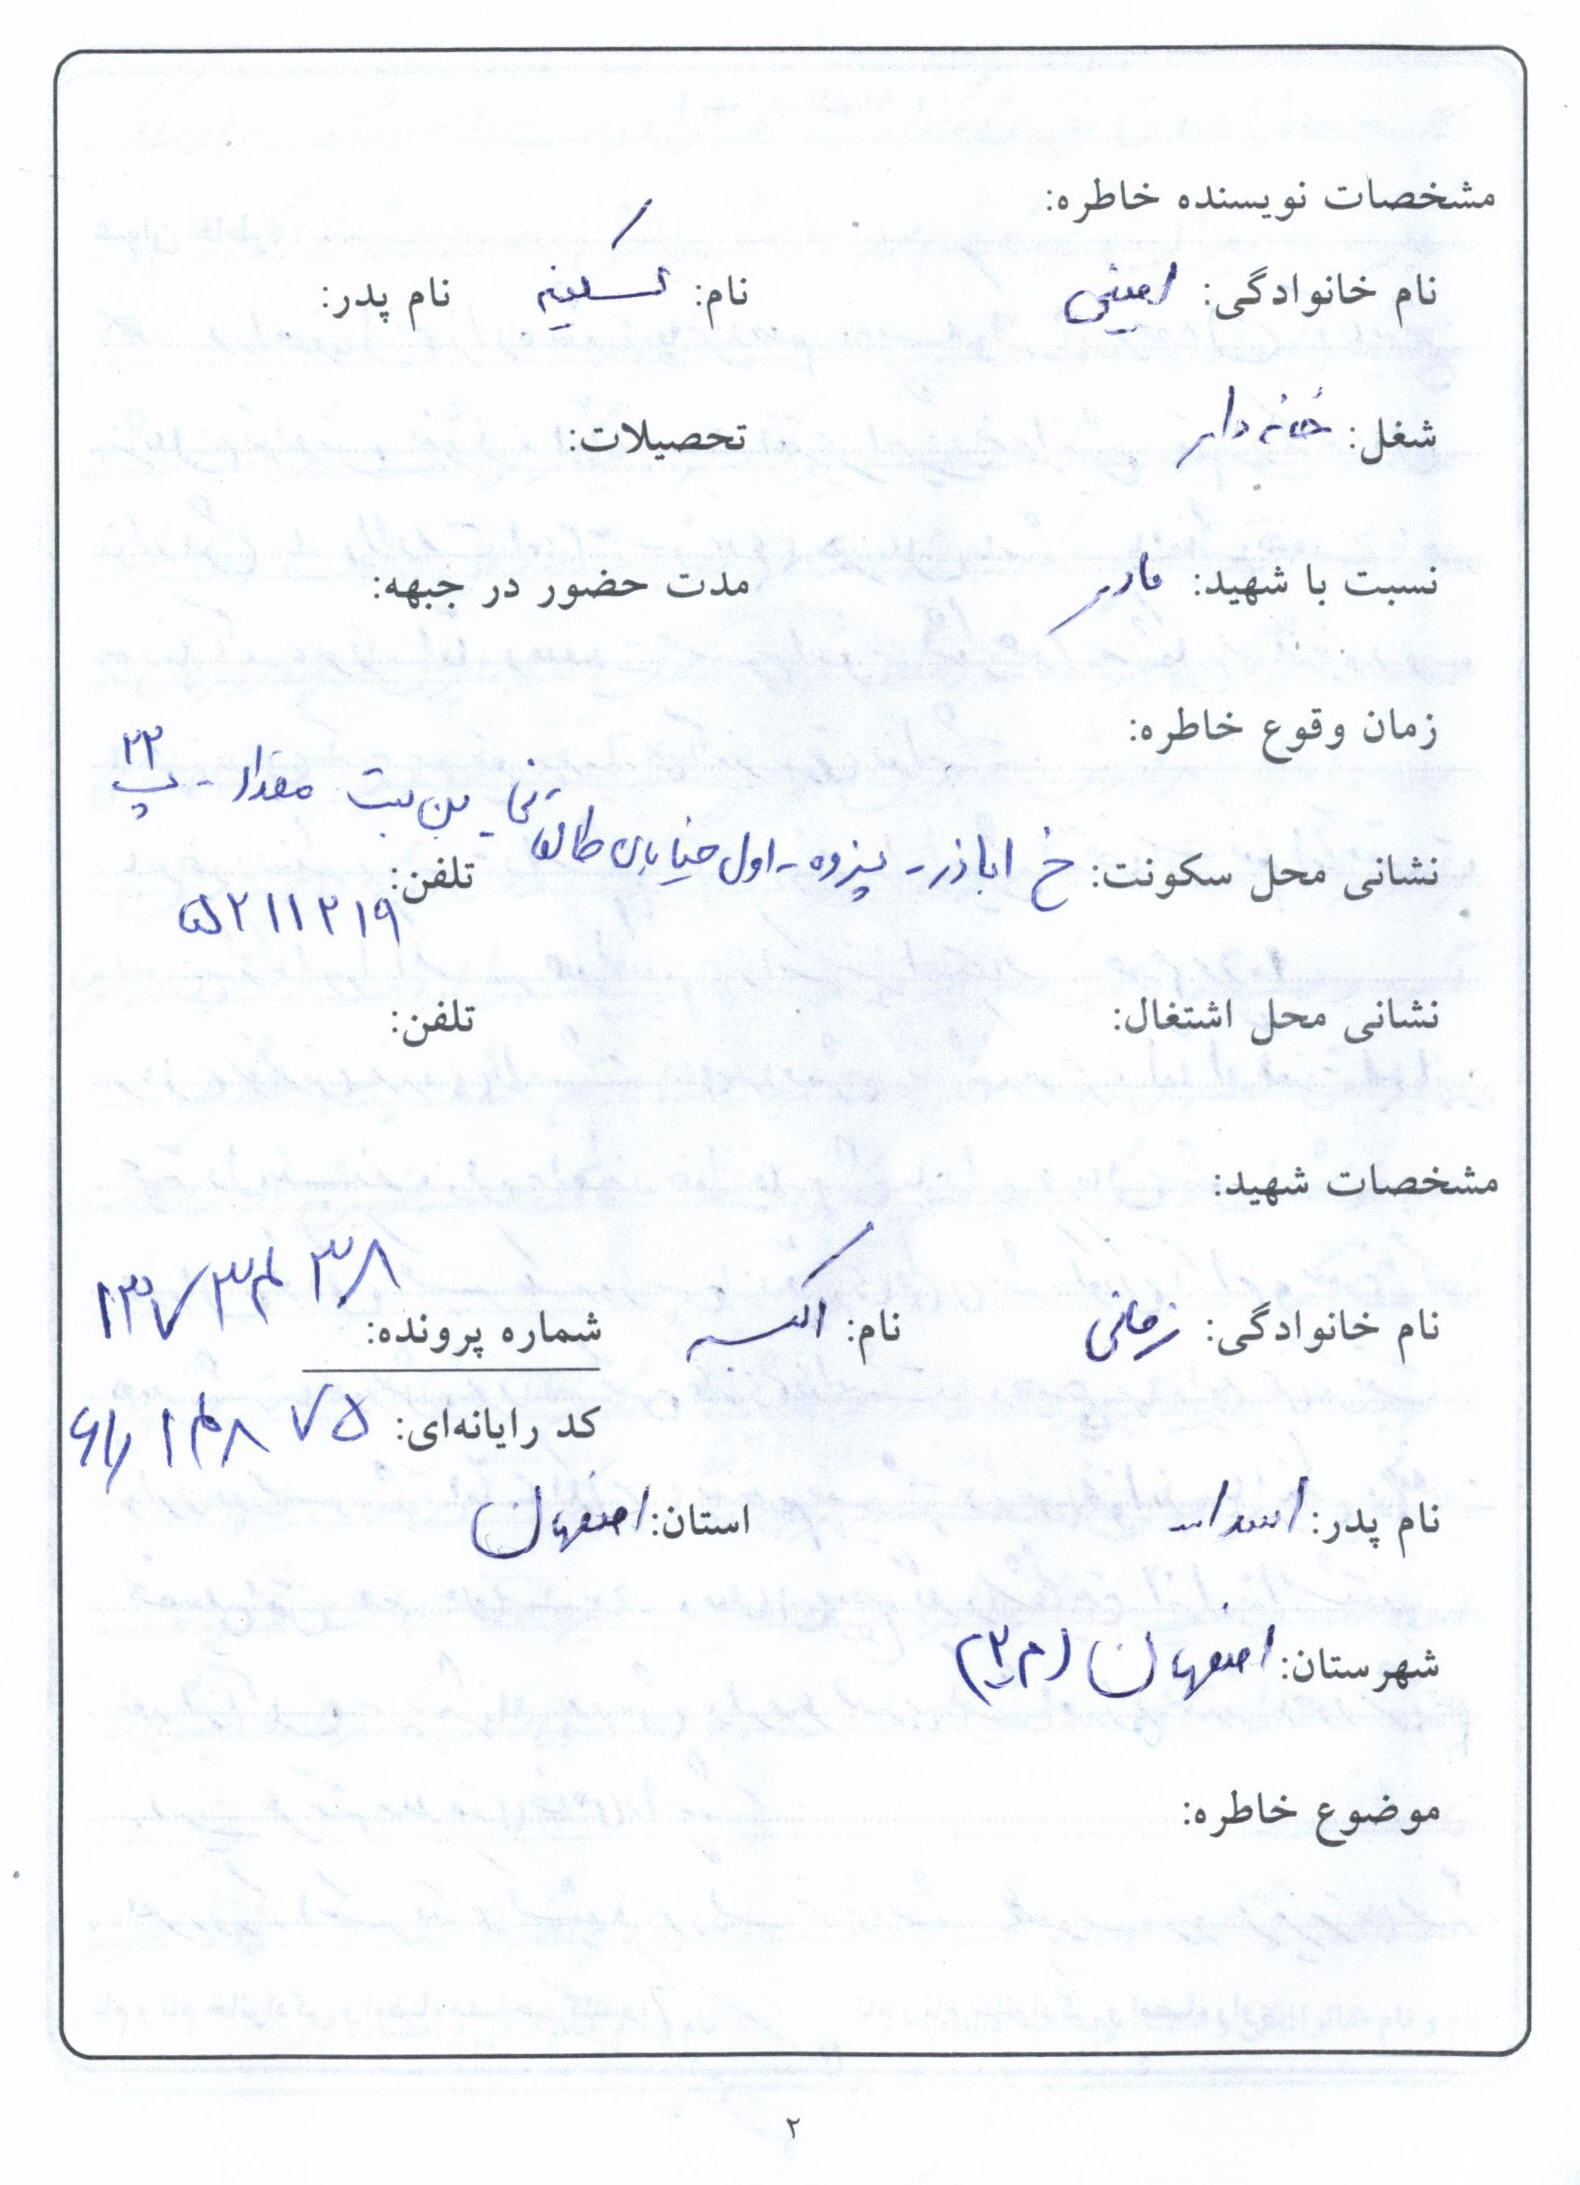 مشخصات نویسنده خاطره:
نام خانوادگی: امینی نام: سکینه نام پدر:
شغل: خانه دار تحصیلات:
نسبت با شهید: مادر مدت حضور در جبهه:
زمان وقوع خاطره:
نشانی محل سکونت: خ اباذر - یزوه - اول خیابان طالقانی - بن بست مقداد - پ ۲۲ تلفن:
۵۲۱۱۲۱۹
نشانی محل اشتغال: تلفن:
مشخصات شهید:
نام خانوادگی: زمانی نام: اکبر شماره پرونده: ۱۳۷۳۴۳۸
کد رایانه‌ای: ۷۵
نام پدر: اسداله استان: اصفهان
شهرستان: اصفهان (م ۲)
موضوع خاطره:
۲